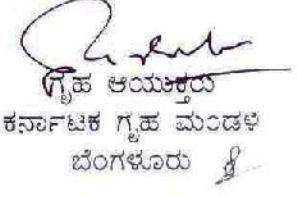 ಗೃಹ ಆಯುಕ್ತರು
ಕರ್ನಾಟಕ ಗೃಹ ಮಂಡಳಿ
ಬೆಂಗಳೂರು